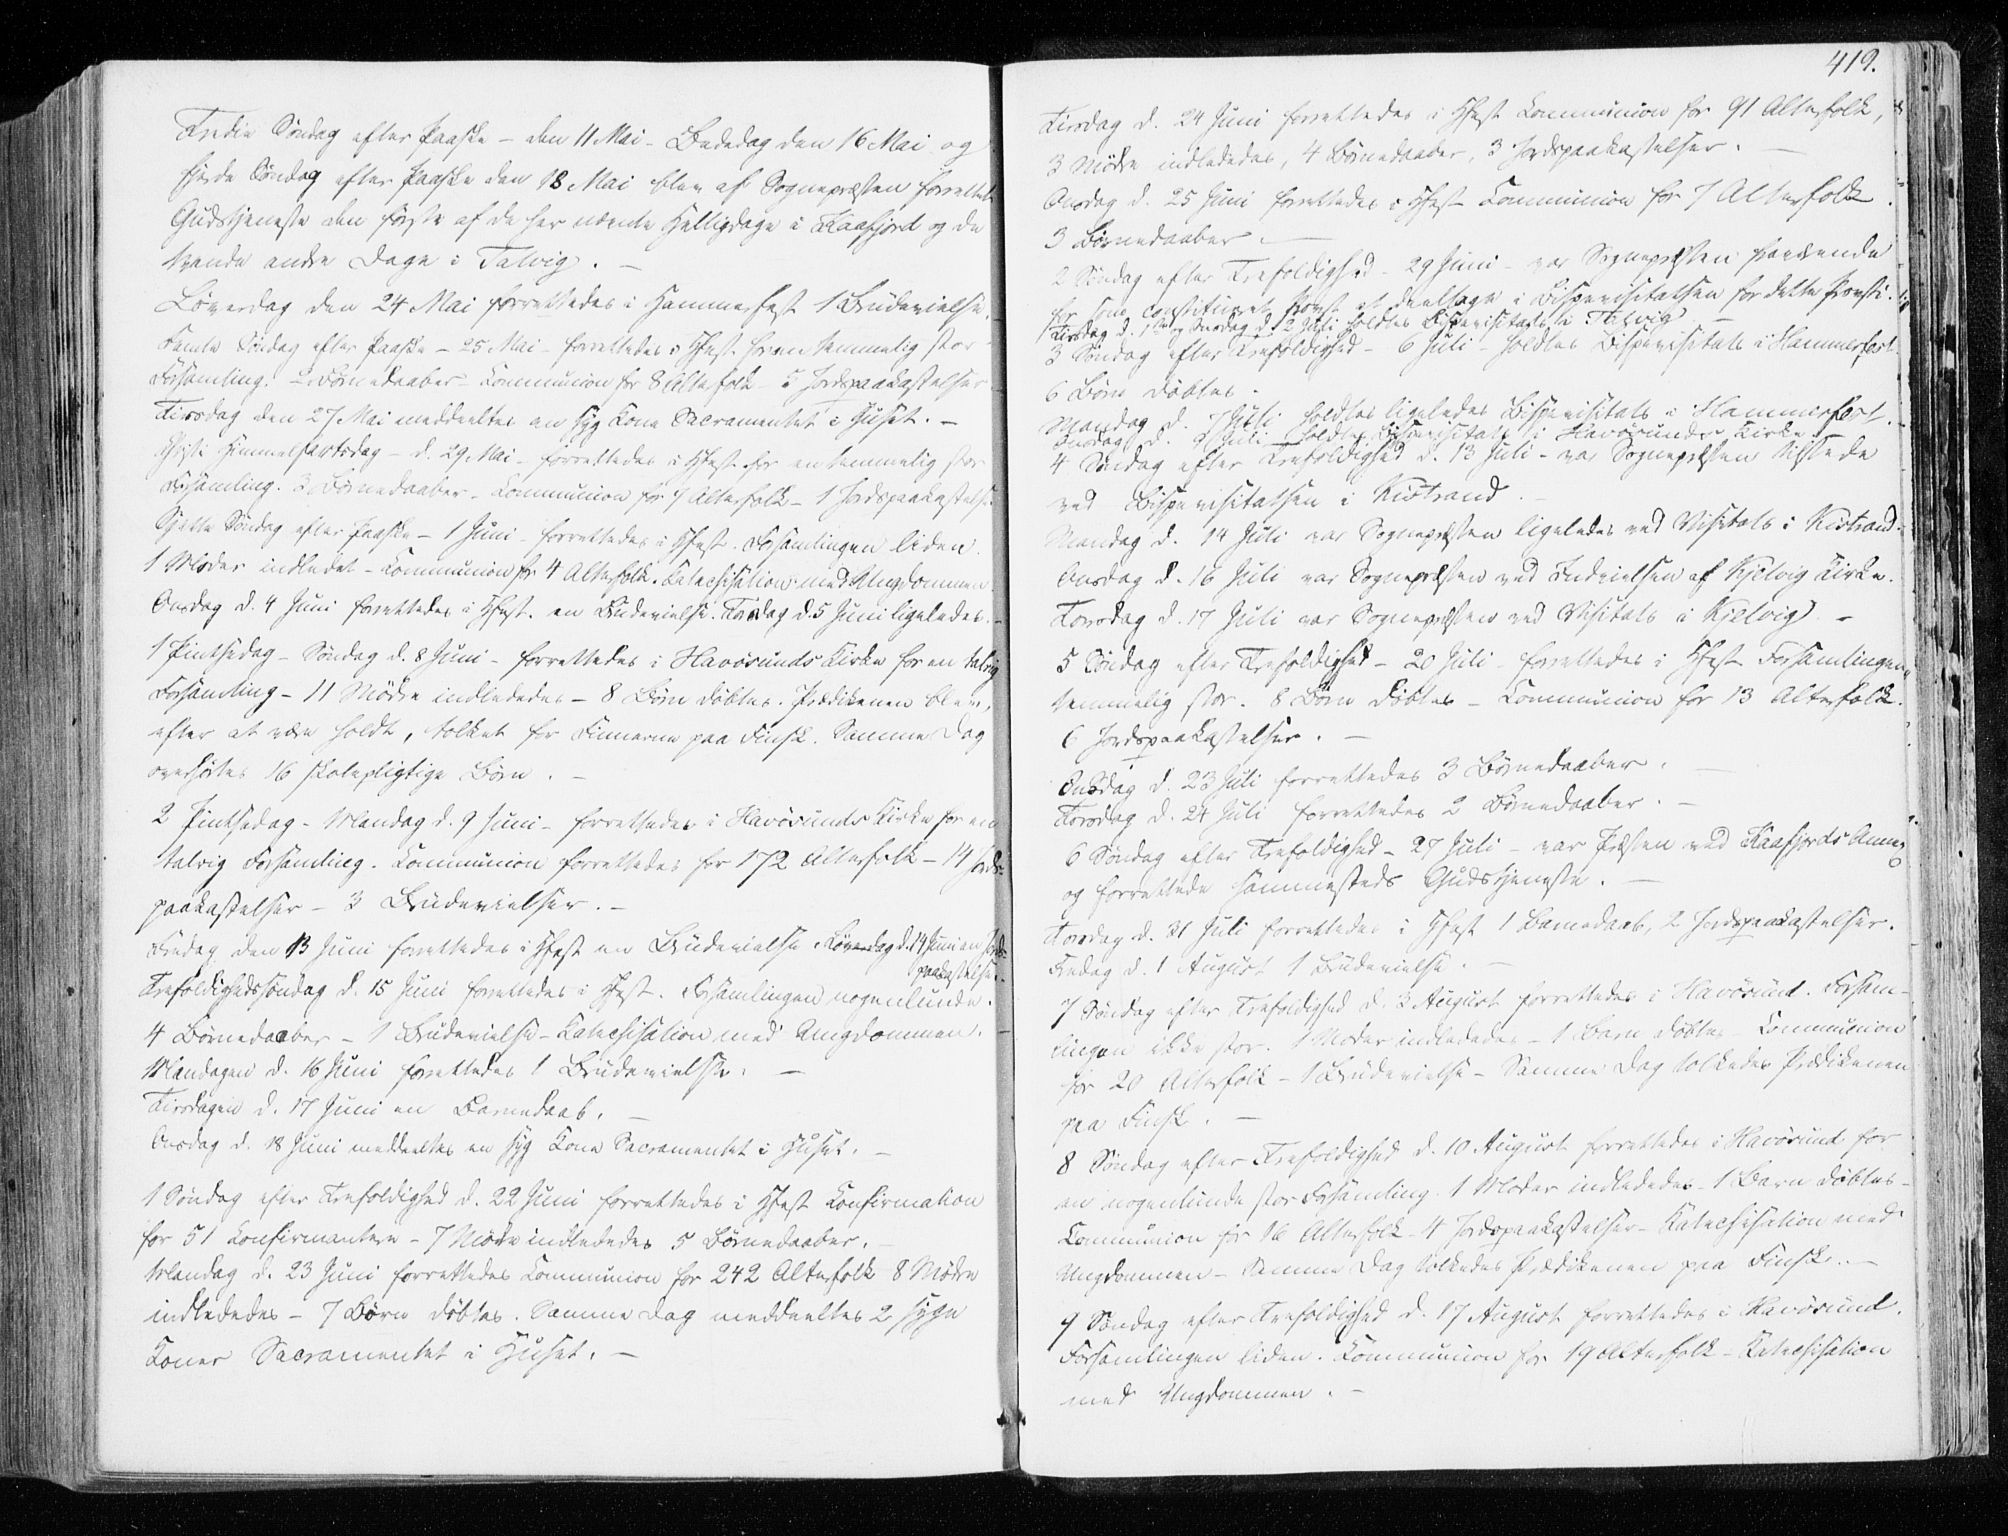 Tredie Søndag efter Paaske - den 11 Mai - Bededag den 16 Mai og
fjerde Søndag efter Paaske den 18 Mai blev af Sognepræsten forrettet
Gudstjeneste den første af de her nævnte Helligdage i Kaafjord og de
tvende andre Dage i Talvig. -
Løverdag den 24 Mai forrettedes i Hammerfest 1 Brudevielse.
Femte Søndag efter Paaske - 25 Mai - forrettedes i Hfest for en temmelig stor
Forsamling. 2 Børnedaaber - Communion for 8 Alterfolk - 5 Jordspaakastelser
Tirsdag den 27 Mai meddeeltes en syg Kone Sacramentet i Huset. -
Christi Himmelfartsdag - d. 29 Mai - forrettedes i Hfest for en temmelig stor
Forsamling. 3 Børnedaaber - Communion for 7 Alterfolk - 1 Jordspaakastelse
Sjette Søndag efter Paaske - 1 Juni - forrettedes i Hfest. Forsamlingen liden.
1 Moder indledet - Communion for 4 Alterfolk. Katechisation med Ungdommen.
Onsdag d. 4 Juni forrettedes i Hfest. en Brudevielse. Torsdag d. 5 Juni ligeledes. -
1 Pintsedag - Søndag d. 8 Juni - forrettedes i Havösunds Kirke for en talrig
Forsamling - 11 Mødre indlededes - 8 Børn døbtes. Prædikenen blev,
efter at være holdt, tolket for Finnerne paa Finsk. Samme Dag
overhørtes 16 skolepligtige Børn. -
2 Pintsedag - Mandag d. 9 Juni - forrettedes i Havösunds Kirke for en
talrig Forsamling. Communion forrettedes for 172 Alterfolk - 14 Jords-
paakastelser - 3 Brudevielser. -
Fredag den 13 Juni forrettedes i Hfest en Brudevielse. Løverdag d. 14 Juni en Jords-
paakastelse.
Trefoldighedssøndag d. 15 Juni forrettedes i Hfest. Forsamlingen nogenlunde.
4 Børnedaaber - 1 Brudevielse - Katechisation med Ungdommen.
Mandagen d. 16 Juni forrettedes 1 Brudevielse. -
Tirsdagen d. 17 Juni en Barnedaab. -
Onsdag d. 18 Juni meddeeltes en syg Kone Sacramentet i Huset. -
1 Søndag efter Trefoldighed d. 22 Juni forrettedes i Hfest Confirmation
for 51 Confirmantere - 7 Mødre indlededes 5 Børnedaaber. -
Mandag d. 23 Juni forrettedes Communion for 242 Alterfolk 8 Mødre
indlededes - 7 Børn døbtes. Samme Dag meddeeltes 2 syge
Koner Sacramentet i Huset. -
419.
Tirsdag d. 24 Juni forrettedes i Hfest Communion for 91 Alterfolk,
3 Mødre indlededes, 4 Børnedaaber, 3 Jordspaakastelser. -
Onsdag d. 25 Juni forrettedes i Hfest Communion for 7 Alterfolk.
3 Børnedaaber -
2 Søndag efter Trefoldighed - 29 Juni - var Sognepræsten
for som constitueret Provst at deeltage i Bispevisitatsen for dette Provsti.
Tirsdag d. 1ste og Onsdag d. 2 Juli holdtes Bispevisitats i Talvig -
3 Søndag efter Trefoldighed - 6 Juli - holdtes Bispevisitats i Hammerfest.
6 Børn døbtes.
Mandag d. 7 Juli holdtes ligeledes Bispevisitats i Hammerfest.
Onsdag d. 9 Juli holdtes Bispevisitats i Havösunds Kirke.
4 Søndag efter Trefoldighed d. 13 Juli - var Sognepræsten tilstede
ved Bispevisitatsen i Kistrand. -
Mandag d. 14 Juli var Sognepræsten ligeledes ved Visitats i Kistrand.
Onsdag d. 16 Juli var Sognepræsten ved Indvielsen af Kjelvig Kirke.
Torsdag d. 17 Juli var Sognepræsten ved Visitats i Kjelvig. -
5 Søndag efter Trefoldighed - 20 Juli - forrettedes i Hfest Forsamlingen
temmelig stor. 8 Børn døbtes - Communion for 13 Alterfolk.
6 Jordspaakastelser. -
Onsdag d. 23 Juli forrettedes 3 Børnedaaber. -
Torsdag d. 24 Juli forrettedes 2 Børnedaaber. -
6 Søndag efter Trefoldighed - 27 Juli - var Præsten ved Kaafjords Annex
og forrettede sammesteds Gudstjeneste. -
Torsdag d. 31 Juli forrettedes i Hfest 1 Barnedaab, 2 Jordspaakastelser.
Fredag d. 1 August 1 Brudevielse. -
7 Søndag efter Trefoldighed d. 3 August forrettedes i Havösund. Forsam-
lingen ikke stor. 1 Moder indlededes - 1 Barn døbtes - Communion
for 20 Alterfolk - 1 Brudevielse - Samme Dag tolkedes Prædikenen
paa Finsk. -
8 Søndag efter Trefoldighed d. 10 August forrettedes i Havösund for
en nogenlunde stor Forsamling. 1 Moder indlededes - 1 Barn døbtes -
Communion for 16 Alterfolk - 4 Jordspaakastelser - Katechisation med
Ungdommen - Samme Dag tolkedes Prædikenen paa Finsk. -
9 Søndag efter Trefoldighed d. 17 August forrettedes i Havösund.
Forsamlingen liden. Communion for 19 Alterfolk - Katechisation
med Ungdommen. -